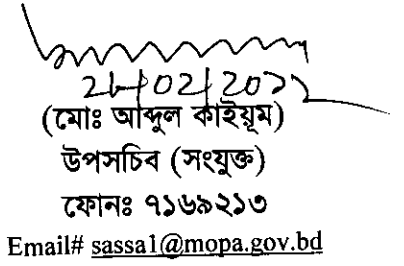 (মোঃ আব্দুল কাইয়ূম)
উপসচিব (সংযুক্ত)
ফোনঃ ৭১৬৯২১৩
Email# sassa1@mopa.gov.bd